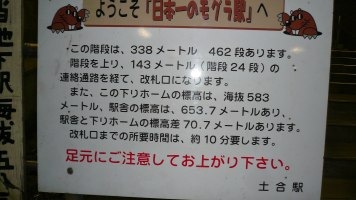 ようこそ『日本一のモグラ駅』へ
この階段は、338メートル 462段あります。
階段を上り、143メートル(階段24段)の
連絡通路を経て、改札口になります。
また、この下りホームの標高は、海抜583
メートル、駅舎の標高は、653.7メートルあり、
駅舎と下りホームの標高差70.7メートルあります。
改札口までの所要時間は、約10分要します。
足元にご注意してお上がり下さい。
土合駅